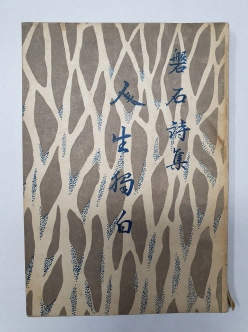 磐石詩集
人生獨白